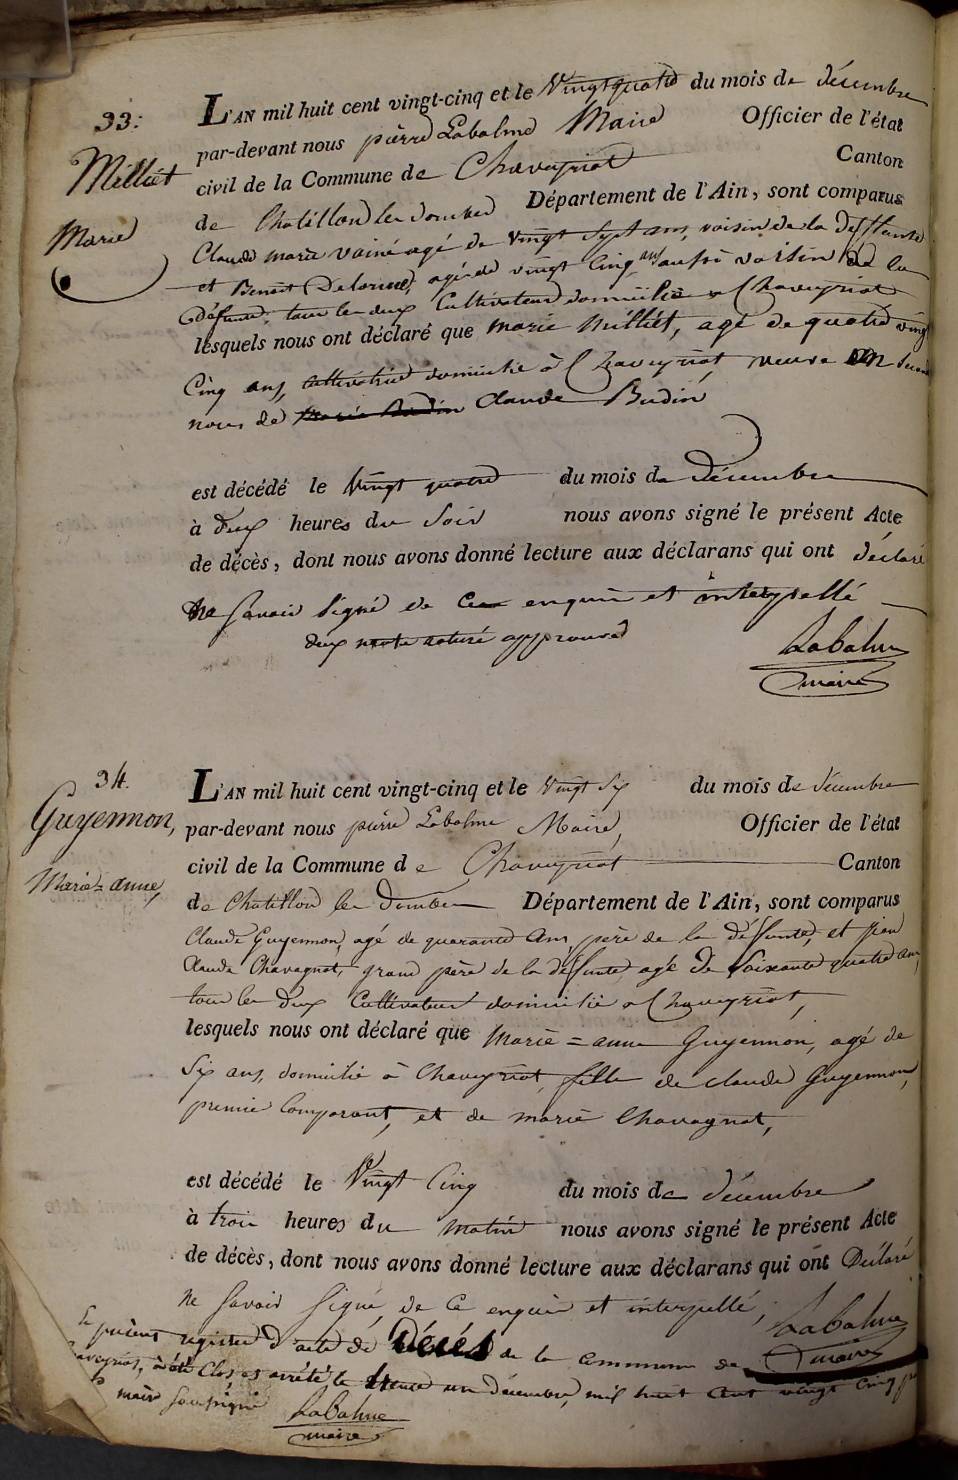 33:
Milliet
Marie
L'AN mil huit cent vingt-cinq et le Vingt quatre du mois de décembre
par-devant nous pierre Labalme Maire Officier de l'état
civil de la Commune de Chaveyriat Canton
de Chatillon les dombes Département de l'Ain, sont comparus
Claude marie vainé agé de vingt sept ans, voisin de la deffunte
et Benoit Delorme, agé de vingt cinq ans aussi voisin de la
défunte, tous les deux Cultivateurs domiciliés a Chaveyriat
lesquels nous ont déclaré que marie Milliet, agé de quatre vingt
Cinq ans, cultivatrice domicilié à Chaveyriat veuve en second
noces de Claude Budin
est décédé le Vingt quatre du mois de décembre
à deux heures du Soir nous avons signé le présent Acte
de décès, dont nous avons donné lecture aux déclarans qui ont déclaré
ne Savoir Signé de Ce enquis et interpellé
deux approuvé
Labalme
maire
34.
Guyennon,
Marie=anne,
L'AN mil huit cent vingt-cinq et le vingt Six du mois de décembre
par-devant nous pierre Labalme Maire, Officier de l'état
civil de la Commune de Chaveyriat Canton
de Chatillon les Dombes Département de l'Ain, sont comparus
Claude Guyennon, agé de quarante ans, père de la défunte, et jean
claude Chavagnat, grand père de la défunte, agé de Soixante quatre ans,
tous les deux Cultivateurs domiciliés a Chaveyriat,
lesquels nous ont déclaré que Marie=anne Guyennon, agé de
Six ans, domicilié à Chaveyriat, fille de claude Guyennon,
premier Comparant, et de marie Chavagnat,
est décédé le Vingt Cinq du mois de décembre
à trois heures du matin nous avons signé le présent Acte
de décès, dont nous avons donné lecture aux déclarans qui ont Déclaré
ne Savoir Signé, de Ce enquis et interpellé,
Labalme
maire
Le présent registre d'acte de Décés de la commune de
Chaveyriat, à été Clos et arrêté le trente un décembre, mil huit cent vingt Cinq par
le maire Soussigné
Labalme
maire